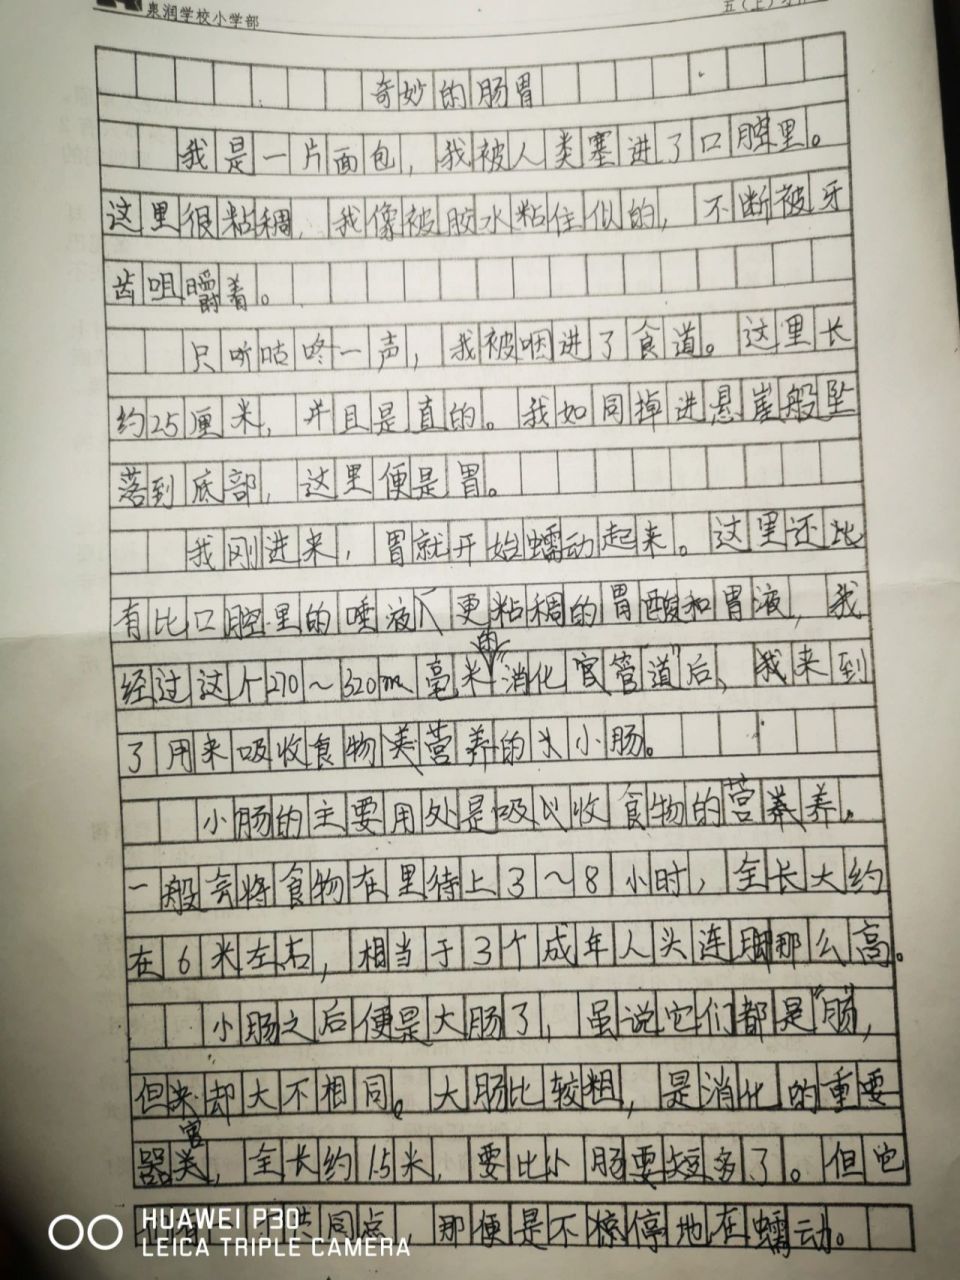 泉润学校小学部
五（上）
奇妙的肠胃
我是一片面包，我被人类塞进了口腔里。
这里很粘稠，我像被胶水粘住似的，不断被牙
齿咀嚼着。
只听咕咚一声，我被咽进了食道。这里长
约25厘米，并且是直的。我如同掉进悬崖般坠
落到底部，这里便是胃。
我刚进来，胃就开始蠕动起来。这里还比
有比口腔里的唾液更粘稠的胃酸和胃液，我
经过这个270～320m毫米的“消化官管道”后，我来到
了用来吸收食物营养的小肠。
小肠的主要用处是吸收食物的营养。
一般会将食物在里待上3～8小时，全长大约
在6米左右，相当于3个成年人头连脚那么高。
小肠之后便是大肠了，虽说它们都是“肠”，
但来却大不相同。大肠比较粗，是消化的重要
器官，全长约1.5米，要比小肠要短多了。但它
们有一个共同点，那便是不停地在蠕动。
HUAWEI P30
LEICA TRIPLE CAMERA